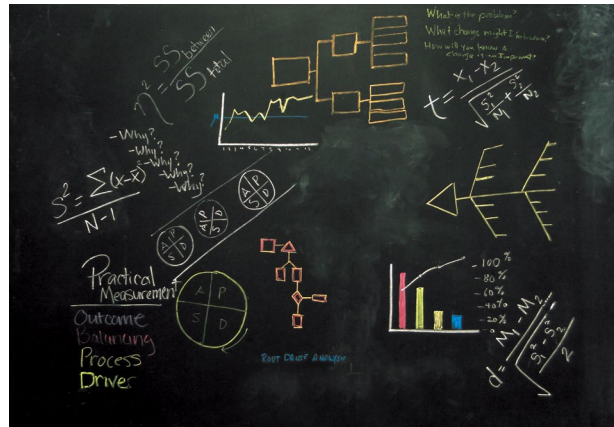 What is the problem?
What change might I introduce?
How will you know a
change is an improvement?
η² = SS between / SS total
t = x₁ - x₂ / √(S₁²/N₁ + S₂²/N₂)
-Why?
-Why?
-Why?
-Why?
-Why?
S² = Σ(x-x̄)² / N-1
A P
S D
A P
S D
A P
S D
Practical
Measurement
Outcome
Balancing
Process
Driver
A P
S D
ROOT CAUSE ANALYSIS
-100%
-80%
-60%
-40%
-20%
-0
d = M₁ - M₂ / √(S₁² - S₂² / 2)